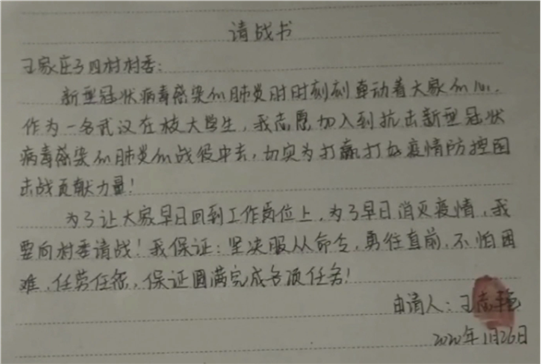 请战书
王家庄子四村村委:
新型冠状病毒感染的肺炎时时刻刻牵动着大家的心.
作为一名武汉在校大学生,我志愿加入到抗击新型冠状
病毒感染的肺炎的战役中去,切实为打赢打好疫情防控阻
击战贡献力量!
为了让大家早日回到工作岗位上,为了早日消灭疫情,我
要向村委请战!我保证:坚决服从命令,勇往直前,不怕困
难,任劳任怨,保证圆满完成各项任务!
申请人:王志艳
2020年1月26日